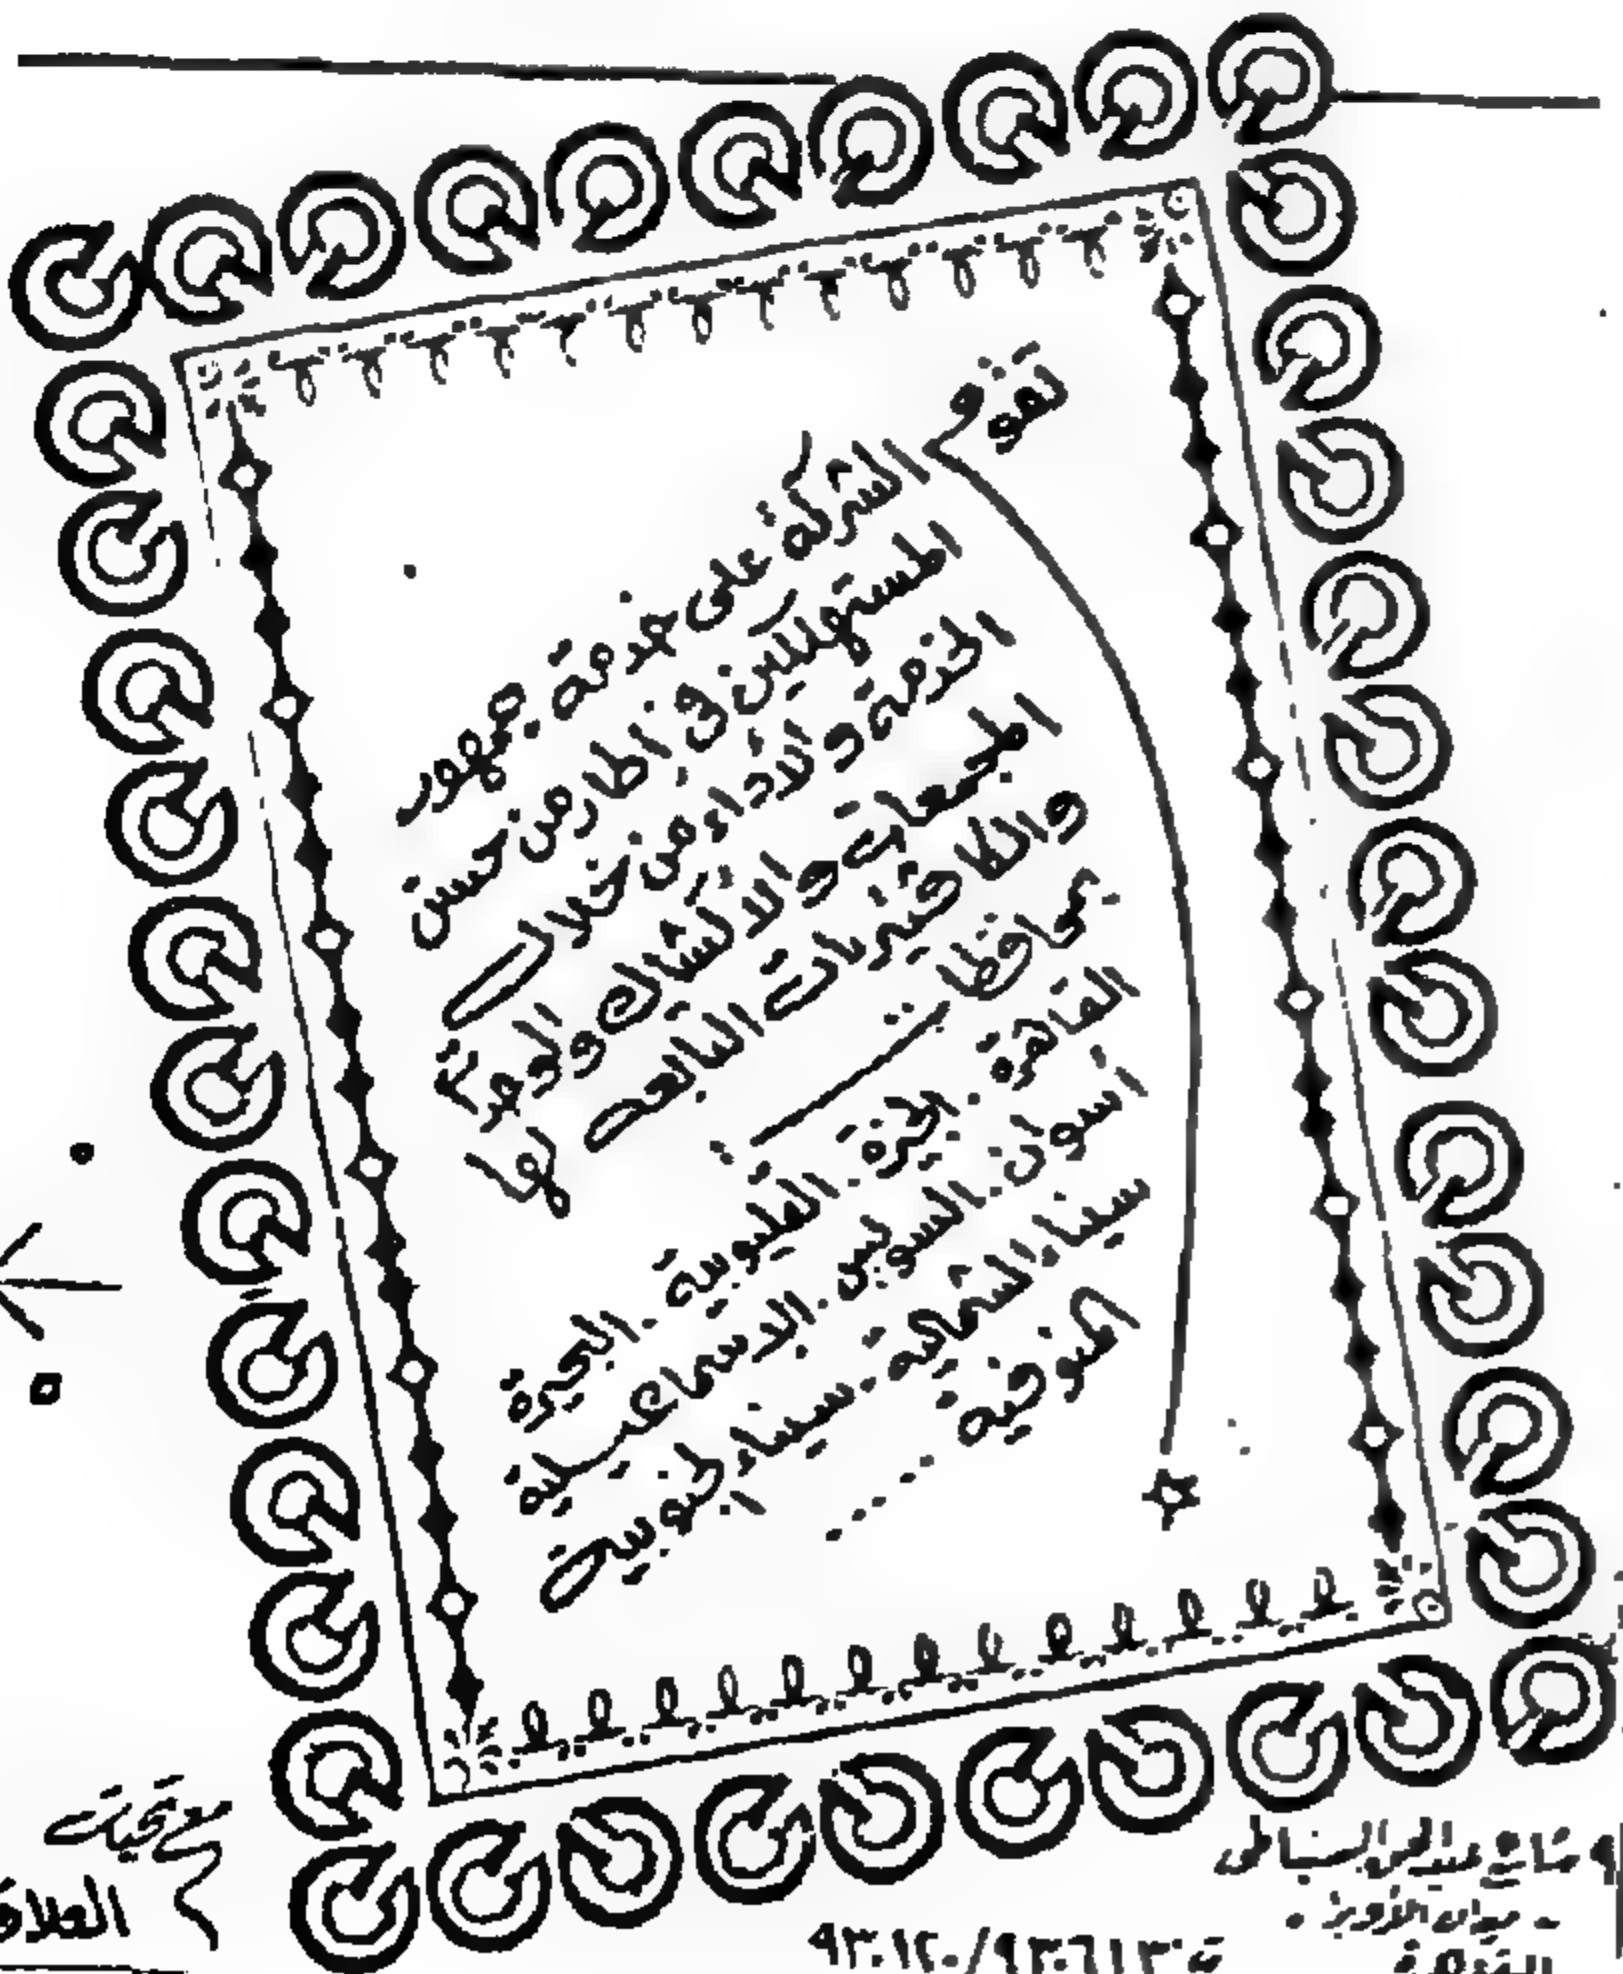 تقوم
الشركة على خدمة جمهور
المستهلكين في إطار من حسن
الخدمة والأداء من خلال
المجمعات والأكشاك والوحدات
والكافتيريات التابعه لها
بمحافظات :
القاهرة . الجيزة . القليوبية . البحيرة
أسوان . السويس . الاسماعيلية
سيناء الشمالية . سيناء الجنوبية
المنوفية ....
مع تحيات
العلاق
٩ شارع عبد الحق السنباطى
- ميدان الأوبرا -
القاهرة
ت ٩٣٠٦١٣/٩٣٠١٢٠